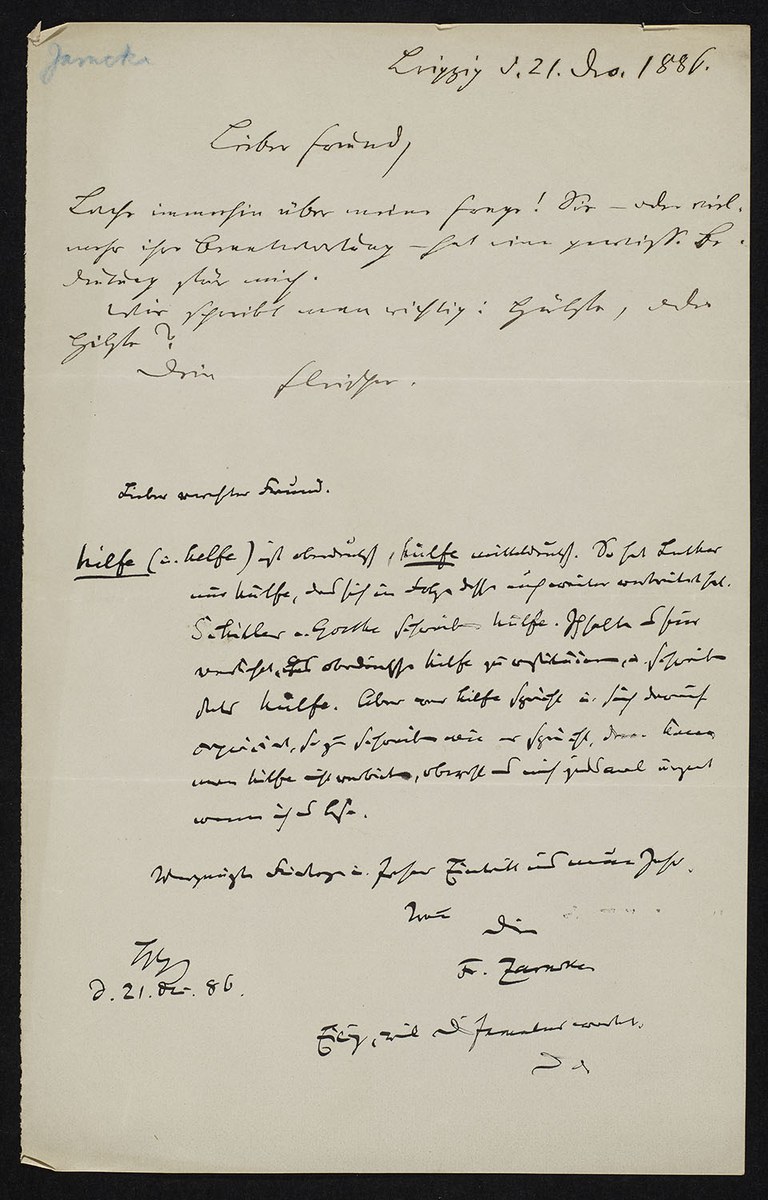 Zarncke
Leipzig d. 21. Dec. 1886.
Lieber Freund,
Lache immerhin über meine Frage! Sie – oder viel-
mehr ihre Beantwortung – hat eine gewisse Be-
deutung für mich.
Wie schreibt man richtig: Hülfe, oder
Hilfe?
Dein Fleischer.
Lieber verehrter Freund.
hilfe (u. helfe) ist oberdeutsch, hülfe mitteldeutsch. So hat Luther
nur hülfe, das sich in Folge dessen auch weiter verbreitet hat.
Schiller u. Goethe schreiben hülfe. Ich halte es für
oberdeutsche hilfe zu restituieren, u. schreibe
stets hülfe. Aber wer hilfe spricht u. sich darauf
so zu schreiben wie er spricht, dem kann
man hilfe nicht verbieten, obwohl es mich jedesmal ärgert
wenn ich es lese.
Vergnügte Feiertage u. froher Eintritt ins neue Jahr.
Dein
Fr. Zarncke
Lpzg
d. 21. Dec. 86.
Eilig, weil der Famulus wartet.
D. O.